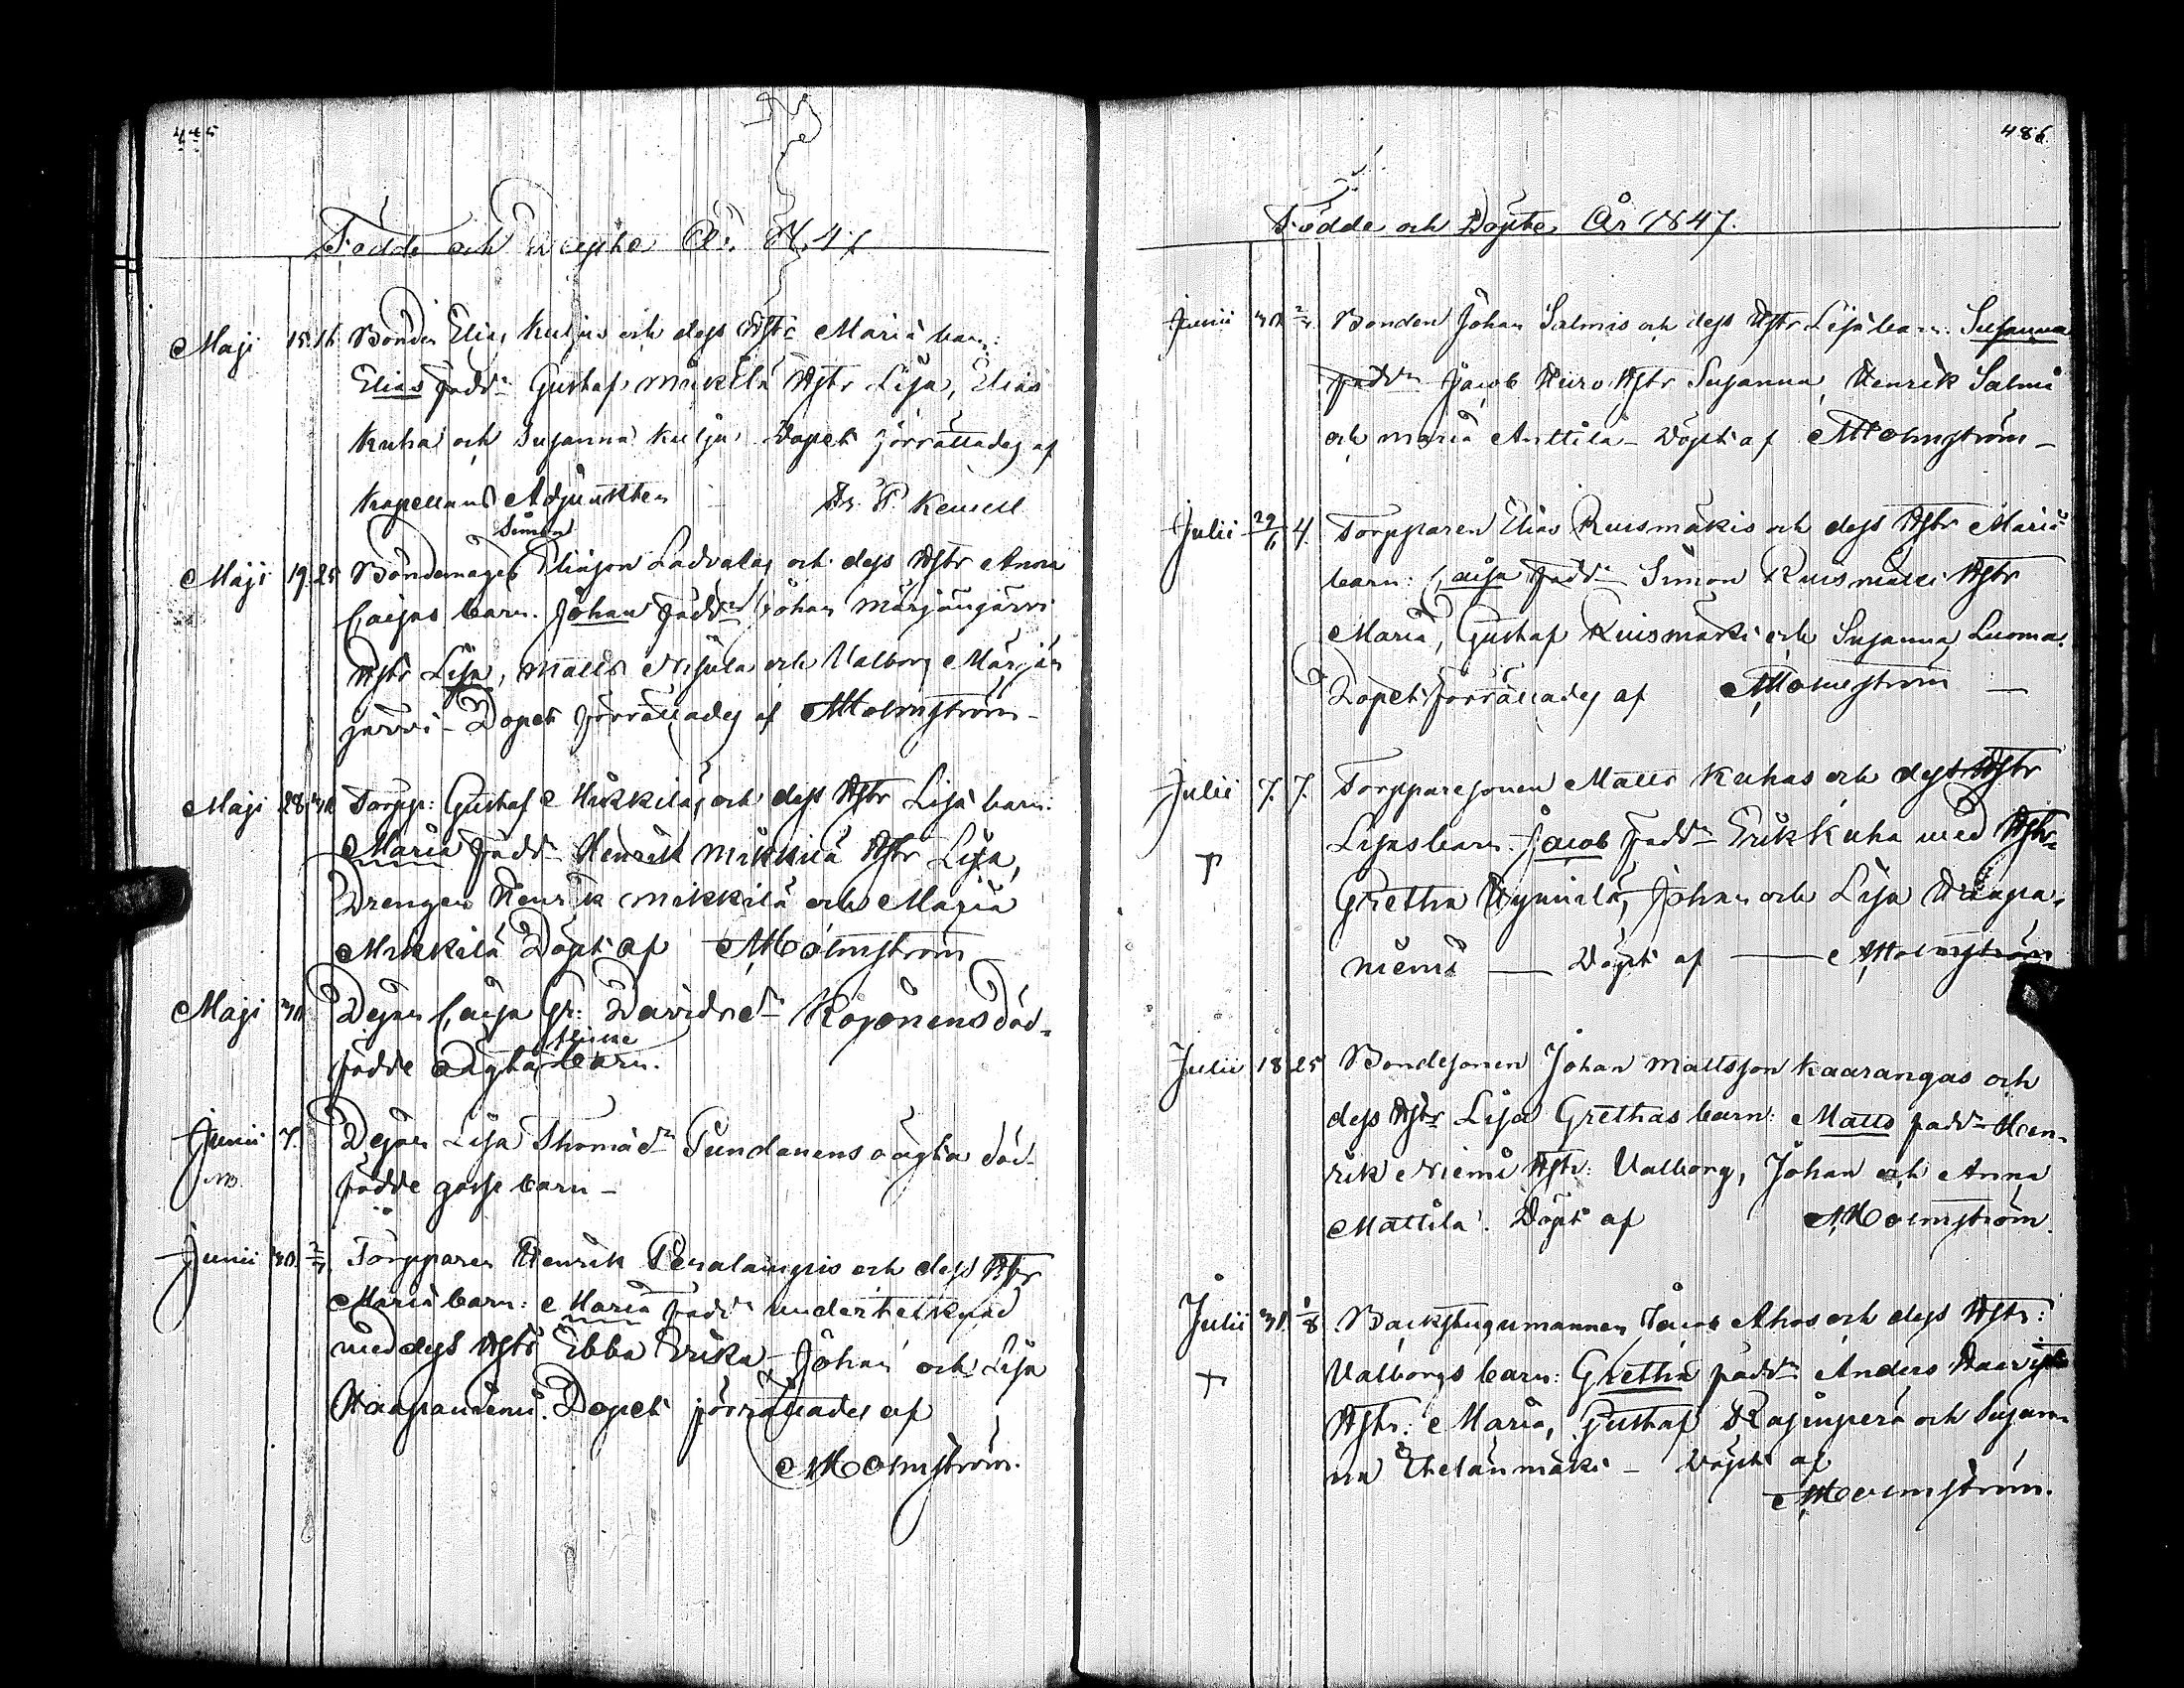 Födde och Döpte År 1847
Maji 15. 16 Bonden Elias Kuljus och dess Hstr Mariæ barn:
Elias fadd:r Gustaf Mikkilä Hstr Lisa, Elias
Kuha och Susanna Kulju. Dopet förrättades af
Kapellans Adjunkten Fr. P. Kewell
Simon
Maji 19. 25 Bondemågen Eliasson Ladvalas och dess Hstr Anna
Caisas barn. Johan fadd:r Johan Märjänjärvi
Hstr Lisa, Matts Nisula och Valborg Märjän
järvi - Dopet förrättades af A Holmström -
Maji 28. 30 Torpp: Gustaf Mikkiläs och dess Hstr Lisæ barn:
Maria fadd:r Henrik Mikkilä Hstr Lisa,
Drengen Henrik Mikkilä och Maria
Mikkilä Döpt af A Holmström
Maji 30 Pigan Caisa Gr: Davidsd:r Koponens död-
flicke
födde oägta barn.
Junii 7. Pigan Lisa Thomæd:r Pundanens oägta död-
födde gosse barn -
Junii 30. 2/7 Torpparen Henrik Peralampis och dess Hstr
Mariæ barn: Maria fadd:r undertecknad
med dess Hstr Ebba Erika, Johan och Lisa
Haapaniemi. Dopet förrättades af
A Holmström.
486.
Födde och Döpte År 1847.
Junii 30. 2/7. Bonden Johan Salmis och dess Hstr Lisæ barn: Susanna
fadd:r Jacob Huro Hstr Susanna, Henrik Salmi
och Maria Anttila - Döpt af A Holmström -
Julii 29/6 4. Torpparen Elias Ruismäkis och dess Hstr Mariæ
barn: Caisa fadd:r Simon Ruismäki Hstr
Maria, Gustaf Ruismäki och Susanna Luoma.
Dopet förrättades af A Holmström -
Julii 7. 7. Torpparesonen Matts Kuhas och dess Hstr
Lisas barn. Jacob fadd:r Erik Kuha med Hstr
Gretha Johan och Lisa Haapa-
niemi - Döpt af - A Holmström
Julii 18 25 Bondesonen Johan Mattsson Kaarangas och
dess Hstr Lisa Grethas barn: Matts fadd:r Hen-
rik Niemi Hstr: Valborg, Johan och Anna
Mattila. Döpt af A Holmström.
Julii 31. 1/8 Backstugumannen Jacob Ahos och dess Hstr:
Valborgs barn: Gretha fadd:r Anders
Hstr: Maria, Gustaf och Susan-
na Etelänmäki - Döpt af
A Holmström.